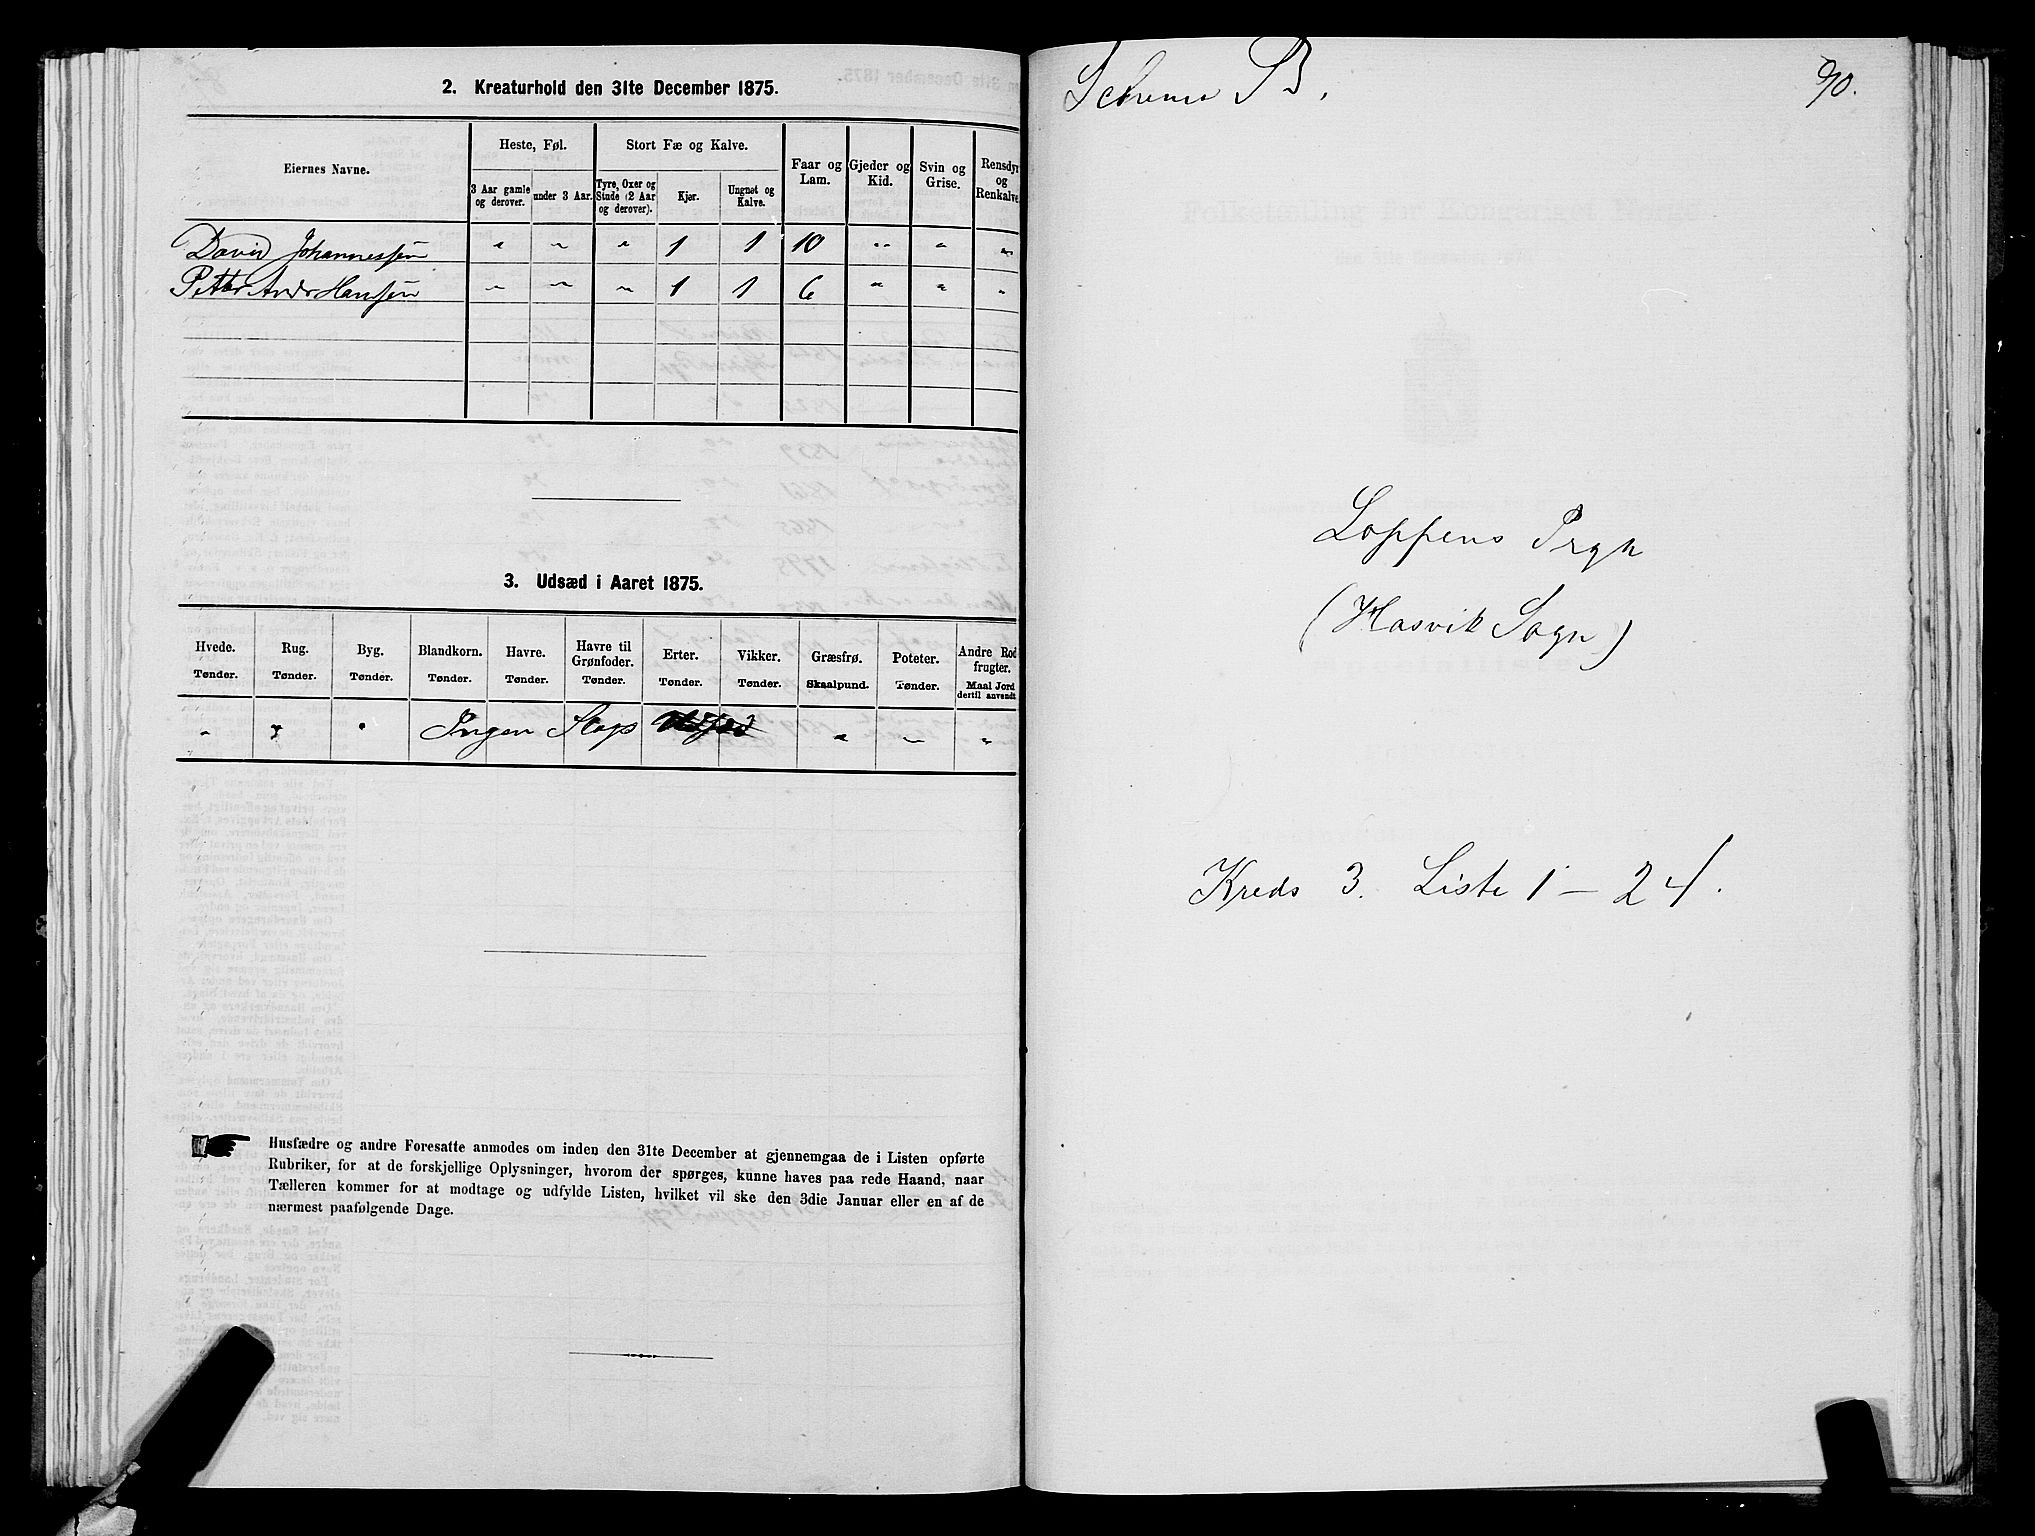 2. Kreaturhold den 31te December 1875.
Eiernes Navne.
Heste, Føl.
Stort Fæ og Kalve.
Faar og Lam.
Gjeder og Kid.
Svin og Grise.
Rensdyr og Renkalve.
3 Aar gamle og derover.
under 3 Aar.
Tyre, Oxer og Stude (2 Aar og derover).
Kjør.
Ungnøt og Kalve.
David Johannessen " " " 1 1 10 " " "
Petter Andr Hansen " " " 1 1 6 " " "
3. Udsæd i Aaret 1875.
Hvede. Rug. Byg. Blandkorn. Havre. Havre til Grønfoder. Erter. Vikker. Græsfrø. Poteter. Andre Rodfrugter.
Tønder. Tønder. Tønder. Tønder. Tønder. Tønder. Tønder. Tønder. Skaalpund. Tønder. Maal Jord dertil anvendt
" " " Ingen Slags " " "
Husfædre og andre Foresatte anmodes om inden den 31te December at gjennemgaa de i Listen opførte
Rubriker, for at de forskjellige Oplysninger, hvorom der spørges, kunne haves paa rede Haand, naar
Tælleren kommer for at modtage og udfylde Listen, hvilket vil ske den 3die Januar eller en af de
nærmest paafølgende Dage.
Schema B.
90.
Loppens Prgh
(Hasvik Sogn)
Kreds 3. Liste 1 - 24.